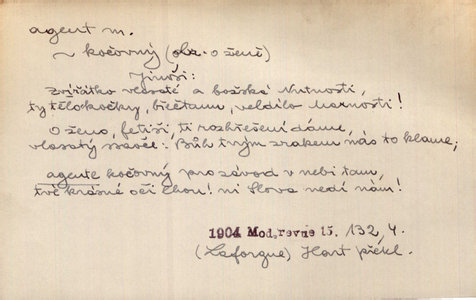 agent m.
~ kočovný (obr. o ženě)
Jinoši:
Zvířátko vlasaté a božská Nutnosti,
ty tělo kočky, břečtanu, veldílo Marnosti!
O ženo, fetiši, ti rozhřešení dáme,
vlasatý ssavče: Bůh tvým zrakem nás to klame,
agente kočovný pro závod v nebi tam,
tvé krásné oči Chou! ni Slova nedí nám!
1904 Mod. revue 15. 132, 4.
(Laforgue) Hart překl.